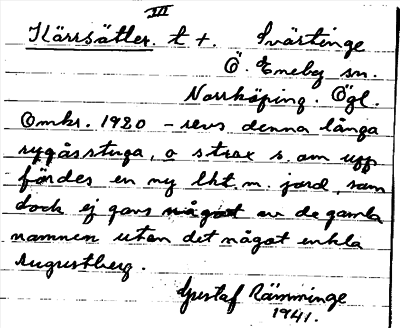 III
Kärrsätter. t +. Svärtinge
Ö. Eneby sn.
Norrköping. Ögl.
Omkr. 1920 - revs denna långa
rygåsstuga, o strax s. om upp
fördes en ny lht. m. jord, som
dock ej gavs något av de gamla
namnen utan det något enkla
Augustberg.
Gustaf Rämminge
1941.